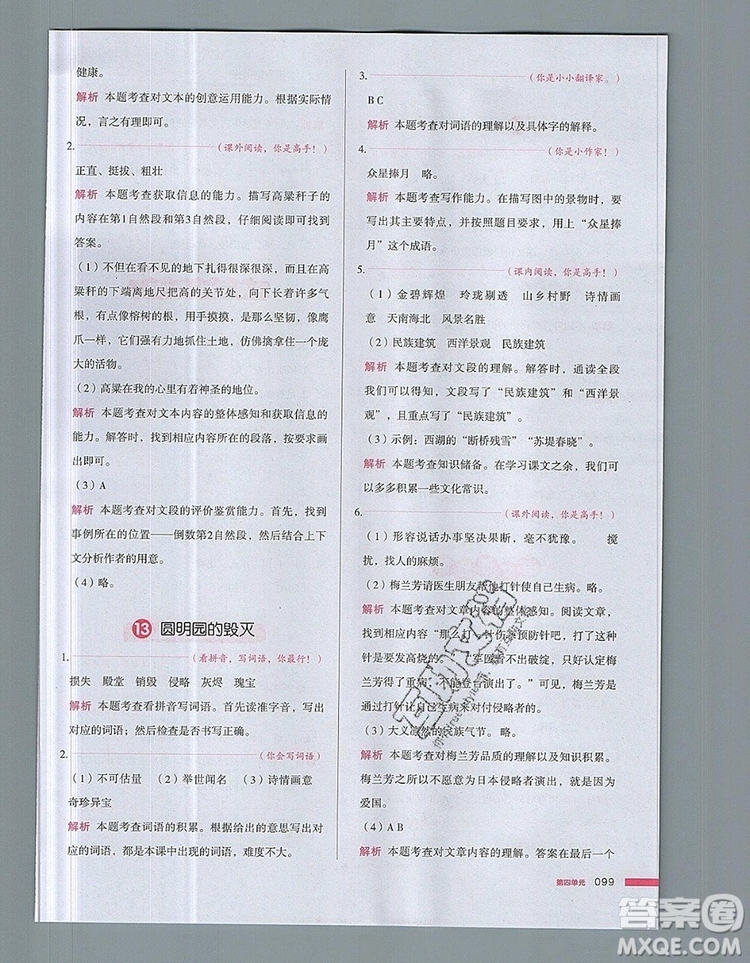 健康。
解析 本题考查对文本的创意运用能力。根据实际情
况，言之有理即可。
2.
（课外阅读，你是高手！）
正直、挺拔、粗壮
解析 本题考查获取信息的能力。描写高粱秆子的
内容在第1自然段和第3自然段，仔细阅读即可找到
答案。
（1）不但在看不见的地下扎得很深很深，而且在高
粱秆的下端离地尺把高的关节处，往往长出许多气
根，有点像榕树的根，用手摸摸，是那么坚韧，像鹰
爪一样；它们强有力地抓住土地，仿佛擒拿住一个庞
大的活物。
（2）高粱在我的心里有着神圣的地位。
解析 本题考查对文本内容的整体感知和获取信息的
能力。解答时，找到相对应的所在的段落，按要求回
答即可。
（3）A
解析 本题考查对文段的评价鉴赏能力。首先，找到
事例所在的位置——倒数第2自然段，然后结合上下
文分析作者的用意。
（4）略。
13 圆明园的毁灭
1.
（看拼音，写词语，你最行！）
损失 殿堂 销毁 侵略 灰烬 瑰宝
解析 本题考查看拼音写词语。首先读准字音，写出
对应的词语；然后检查是否书写正确。
2.
（你会写词语）
（1）不可估量 （2）举世闻名 （3）诗情画意
奇珍异宝
解析 本题考查词语的积累。根据给出的意思写出对
应的词语，都是本课中出现的词语，难度不大。
3.
（你是小小翻译家。）
B C
解析 本题考查对词语的理解以及具体字的解释。
4.
（你是小作家！）
众星捧月 略。
解析 本题考查写作能力。在描写图中的景物时，要
抓住其主要特点，并按照题目要求，用上“众星捧
月”这个成语。
5.
（课内阅读，你是高手！）
（1）金碧辉煌 玲珑剔透 山乡村野 诗情画
意 天南海北 风景名胜
（2）民族建筑 西洋景观 民族建筑
解析 本题考查对文段的理解。解答时，通读全段
我们可以了解到，文段写了“民族建筑”和“西洋景
观”，并且着重写了“民族建筑”。
（3）示例：西湖的“断桥残雪”“苏堤春晓”。
解析 本题考查知识储备。在学习课文之余，我们可
以多多积累一些文化常识。
6.
（课外阅读，你是高手！）
（1）形容说话办事坚决果断，毫不犹豫。 搅
扰，找人的麻烦。
（2）梅兰芳请医生朋友帮他打针使自己生病。略。
解析 本题考查对文章内容的整体感知。阅读文章，
“发高烧”
兰芳得了重病，不能登台演出了。”可以得出梅兰芳
通过打针让自己生病来对付侵略者的。
（3）大义凛然的民族气节。略。
解析 本题考查对梅兰芳品质的理解以及知识积累。
梅兰芳想尽办法而不愿意为日本侵略者演出，就是
爱国。
（4）A B
解析 本题考查对文章内容的理解。答案在最后一个
第四单元 099
答案圈
MXQE.COM